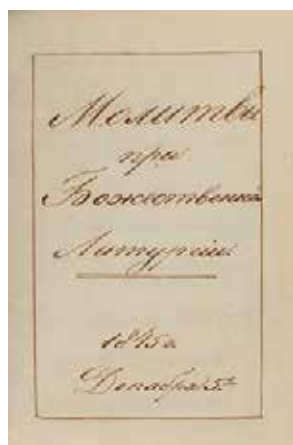 Молитвы
при
Божественной
Литургіи.
1845 г.
Декабря 5.